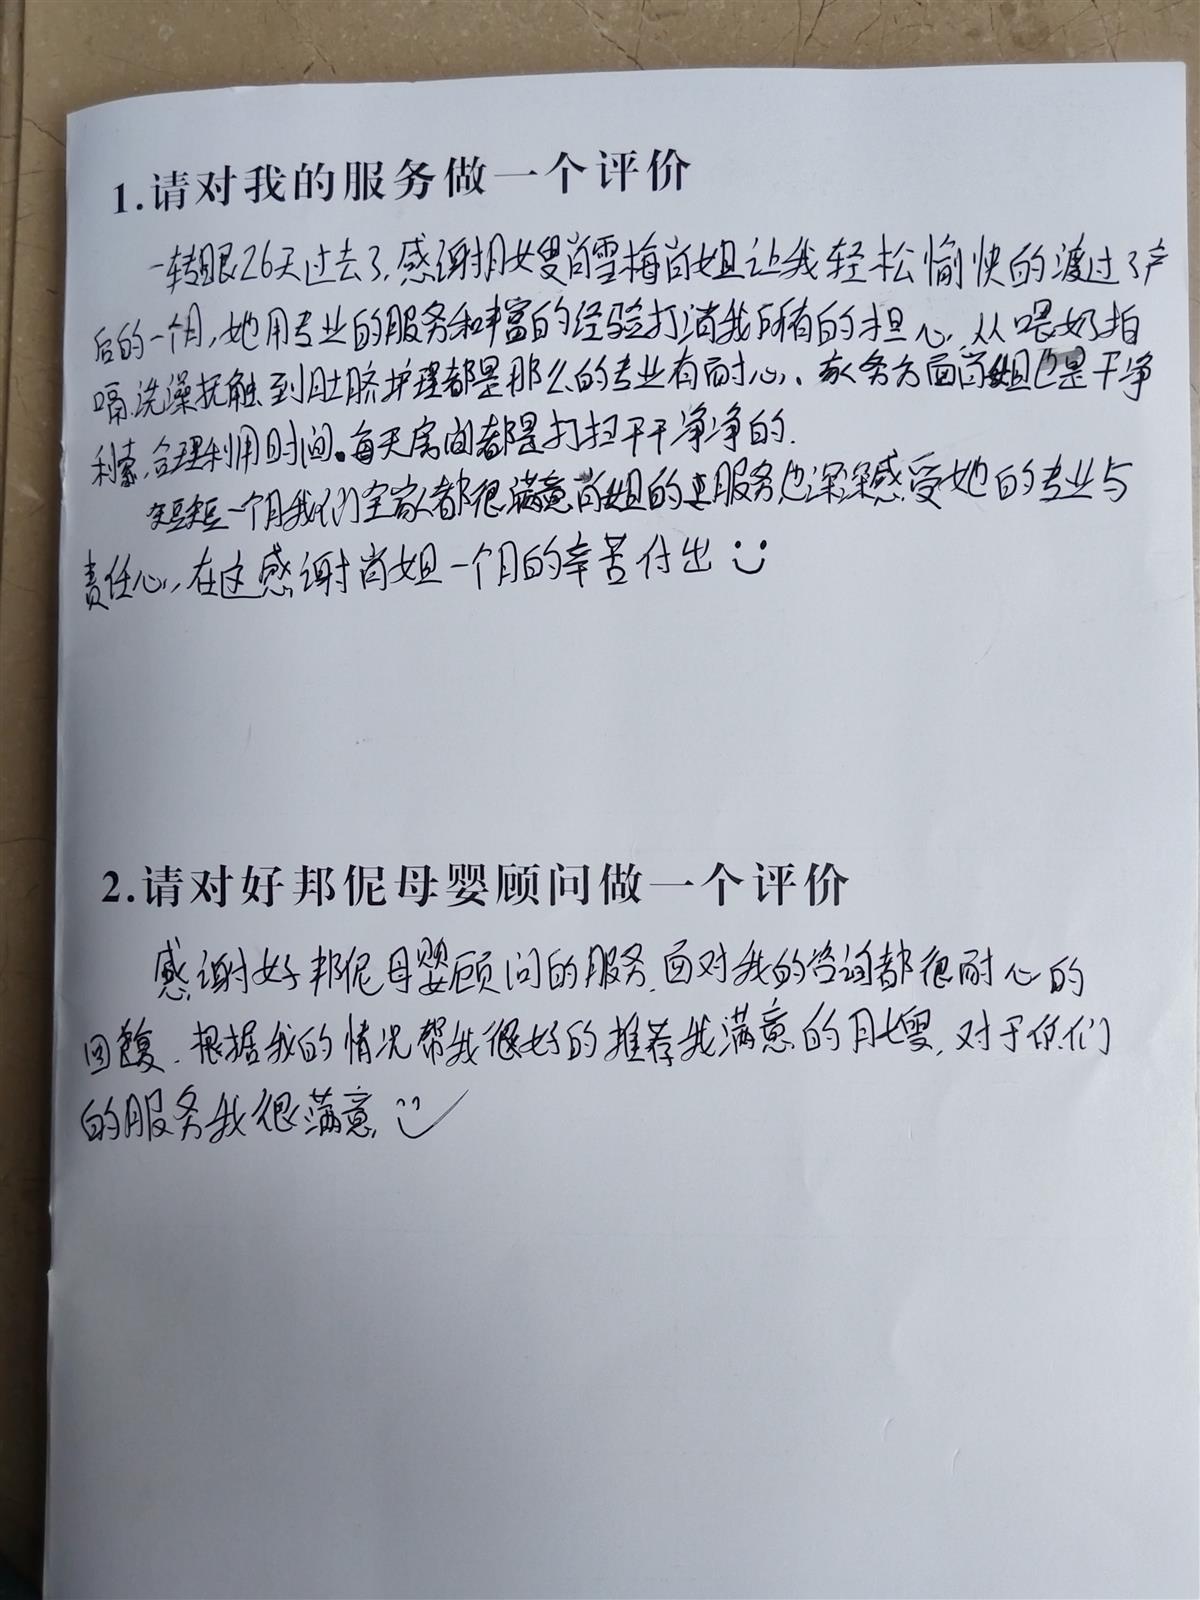 1.请对我的服务做一个评价
一转眼26天过去了,感谢月嫂尚雪梅尚姐让我轻松愉快的渡过了产
后的一个月,她用专业的服务和丰富的经验打消我所有的担心,从喂奶拍
嗝.洗澡抚触.到肚脐护理都是那么的专业有耐心、家务方面尚姐也是干净
利索,合理利用时间。每天房间都是打扫干干净净的.
短短一个月我们全家都很满意尚姐的服务也深深感受她的专业与
责任心,在这感谢尚姐一个月的辛苦付出
2.请对好邦伲母婴顾问做一个评价
感谢好邦伲母婴顾问的服务.面对我的咨询都很耐心的
回复.根据我的情况帮我很好的推荐我满意的月嫂,对于你们
的服务我很满意.